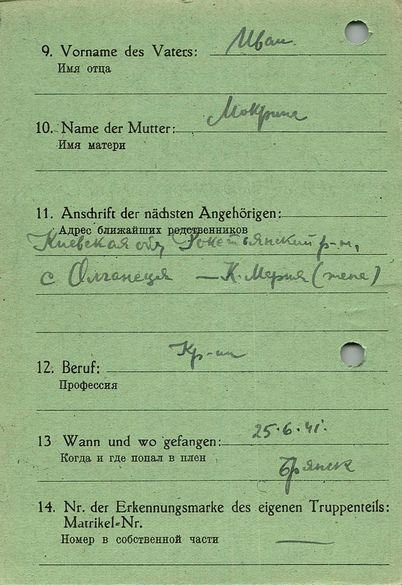 9. Vorname des Vaters: Иван
Имя отца
10. Name der Mutter: Мокрина
Имя матери
11. Anschrift der nächsten Angehörigen:
Адрес ближайших родственников
Киевская обл, р-н,
с - К. Мария (
12. Beruf: Кр-ин
Профессия
13 Wann und wo gefangen: 25.6.41.
Когда и где попал в плен
Брянск
14. Nr. der Erkennungsmarke des eigenen Truppenteils:
Matrikel-Nr.
Номер в собственной части —